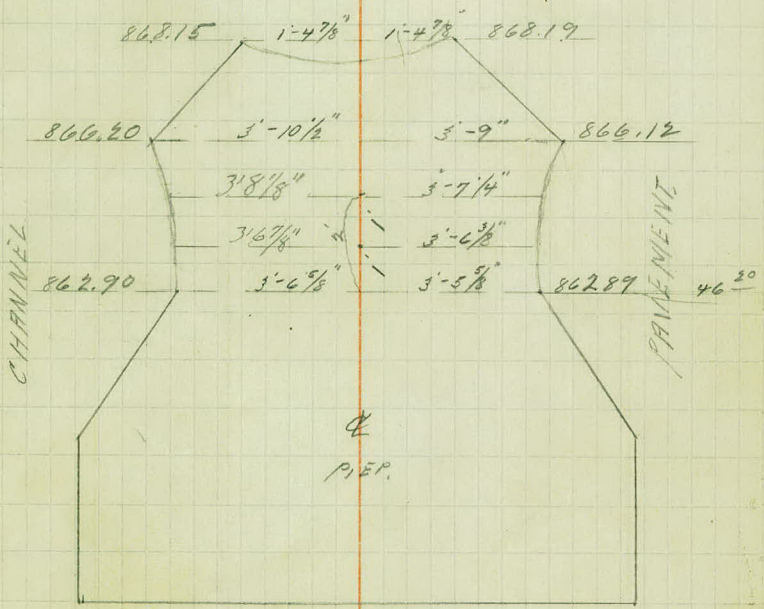 868.15 1'-4 7/8" 1'-4 7/8" 868.19
866.20 3'-10 1/2" 3'-9" 866.12
3'8 1/8" 3'-7 1/4"
3'6 7/8" 2' 1' 3'-6 3/8"
1'
862.90 3'-6 5/8" 3'-5 5/8" 862.89 46 20
CHANNEL
PAVEMENT
℄
PIER.